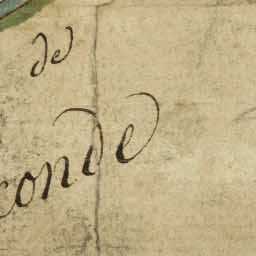 de
conde